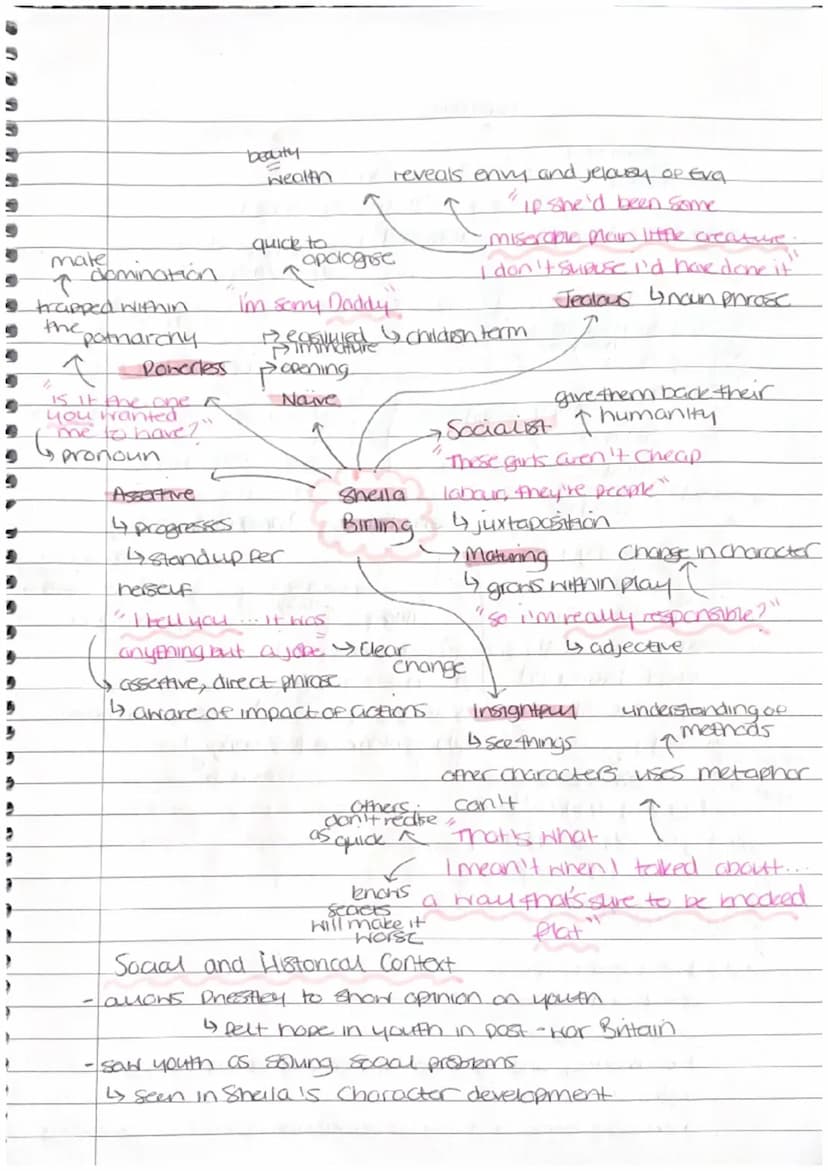 beauty
=
wealth
reveals envy and jelousy of Eva
"if she'd been some
miserable plain little creature.
I don't supuse i'd have done it"
Jealous ↳ noun phrase
quick to
apologise
"I'm sorry Daddy"
↳ childish term
↱ immature
↱ opening
Naïve
male
domination
trapped within
the
patriarchy
Powerless
"Is it the one
you wanted
me to have?"
↳ pronoun
give them back their
humanity
Socialist
"These girls aren't cheap
labour, they're people"
↳ juxtaposition
Sheila
Birling
Assertive
↳ progresses
↳ stand up for
herself
"I tell you ... it was
anything but a joke" → clear
change
↳ assertive, direct phrase
↳ aware of impact of actions
Maturing
change in character
↳ grows within play
"so i'm really responsible?"
↳ adjective
Insightful
↳ see things
other characters
can't
understanding of
methods
uses metaphor
others
don't realise
as quick
knows
secrets
will make it
worse
"That's what
I mean't when I talked about...
a wall that's sure to be knocked
flat"
Social and Historical Context
- allows Priestley to show opinion on youth
↳ felt hope in youth in post-war Britain
- saw youth as solving social problems
↳ seen in Sheila's character development